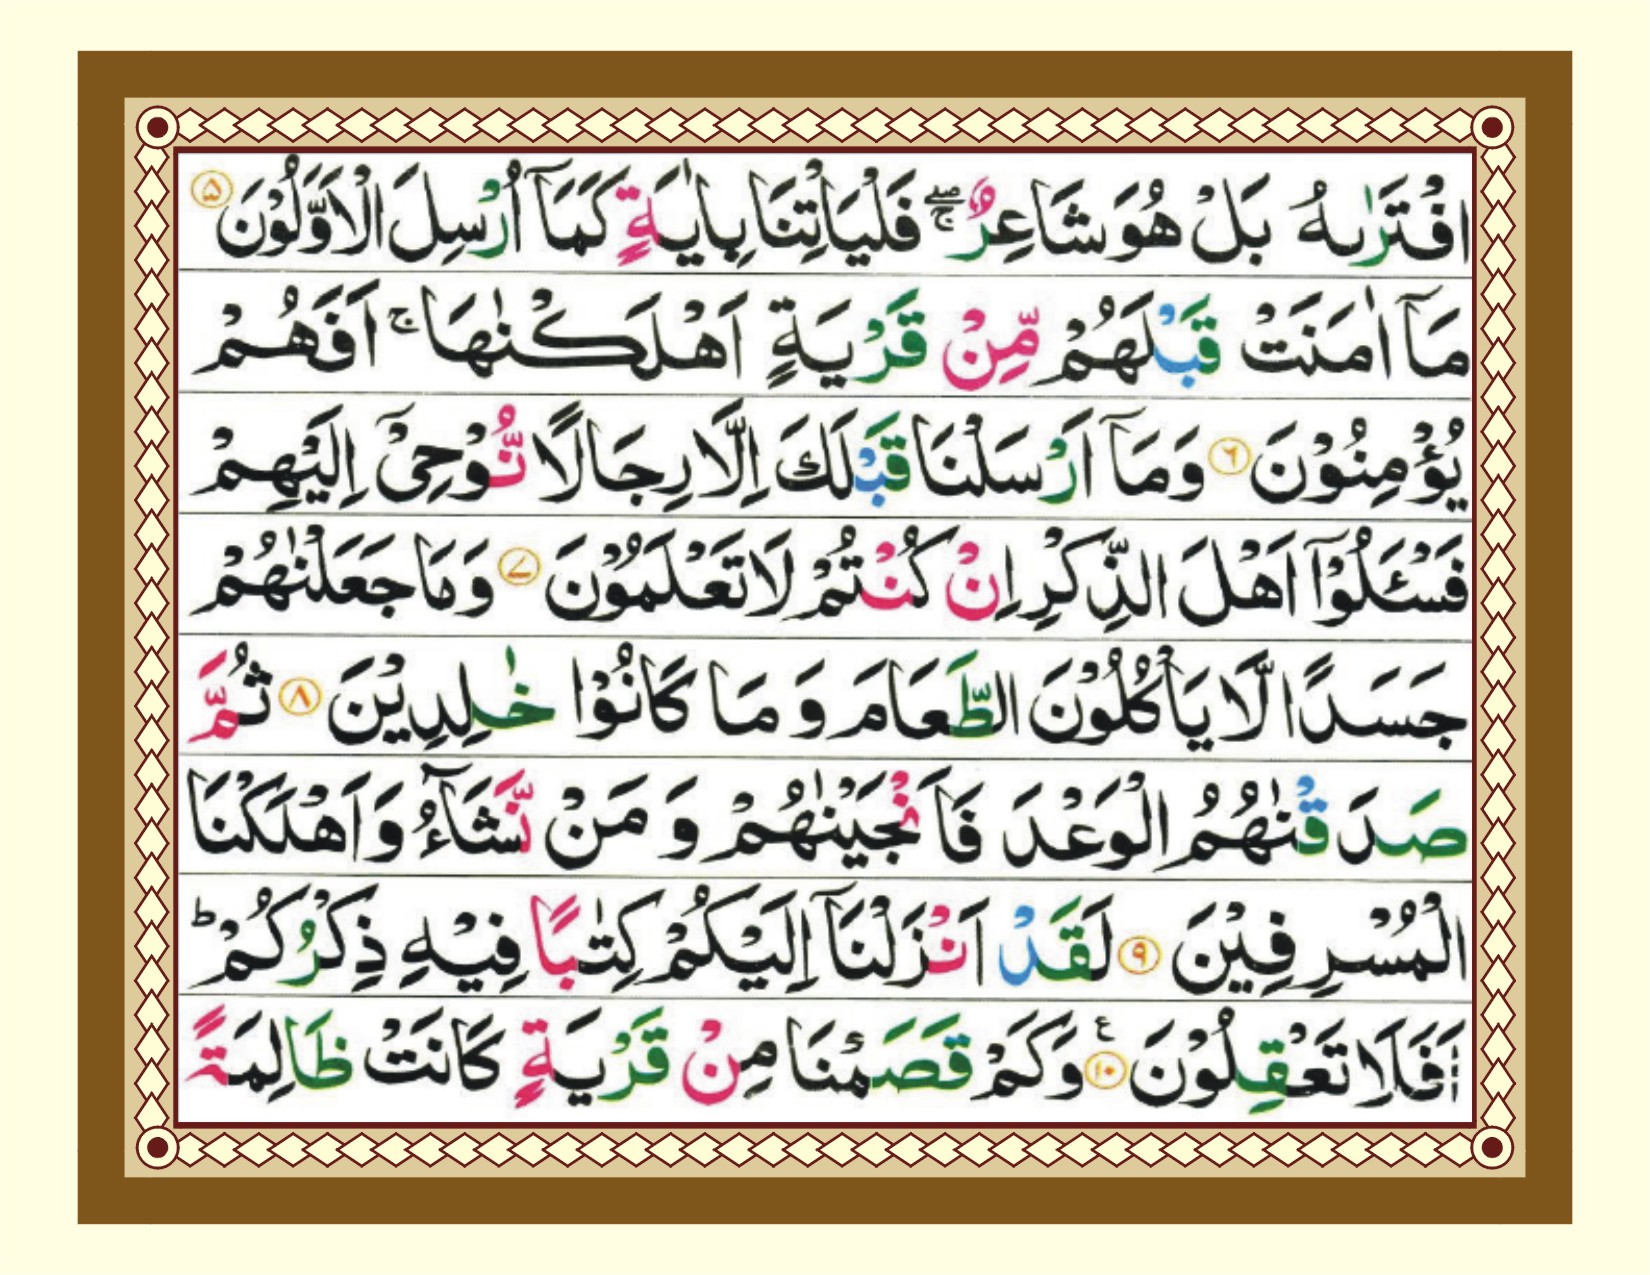 افْتَرٰىهُ بَلْ هُوَ شَاعِرٌ ۖۚ فَلْيَاْتِنَا بِاٰيَةٍ كَمَاۤ اُرْسِلَ الْاَوَّلُوْنَ ۵
مَاۤ اٰمَنَتْ قَبْلَهُمْ مِّنْ قَرْيَةٍ اَهْلَكْنٰهَا ۚ اَفَهُمْ
يُؤْمِنُوْنَ ۶ وَمَاۤ اَرْسَلْنَا قَبْلَكَ اِلَّا رِجَالًا نُّوْحِىْۤ اِلَيْهِمْ
فَسْـَٔلُوْۤا اَهْلَ الذِّكْرِ اِنْ كُنْتُمْ لَا تَعْلَمُوْنَ ۷ وَمَا جَعَلْنٰهُمْ
جَسَدًا لَّا يَاْكُلُوْنَ الطَّعَامَ وَ مَا كَانُوْا خٰلِدِيْنَ ۸ ثُمَّ
صَدَقْنٰهُمُ الْوَعْدَ فَاَنْجَيْنٰهُمْ وَ مَنْ نَّشَآءُ وَاَهْلَكْنَا
الْمُسْرِفِيْنَ ۹ لَقَدْ اَنْزَلْنَاۤ اِلَيْكُمْ كِتٰبًا فِيْهِ ذِكْرُكُمْ ؕ
اَفَلَا تَعْقِلُوْنَ ۱۰ ع وَكَمْ قَصَمْنَا مِنْ قَرْيَةٍ كَانَتْ ظَالِمَةً